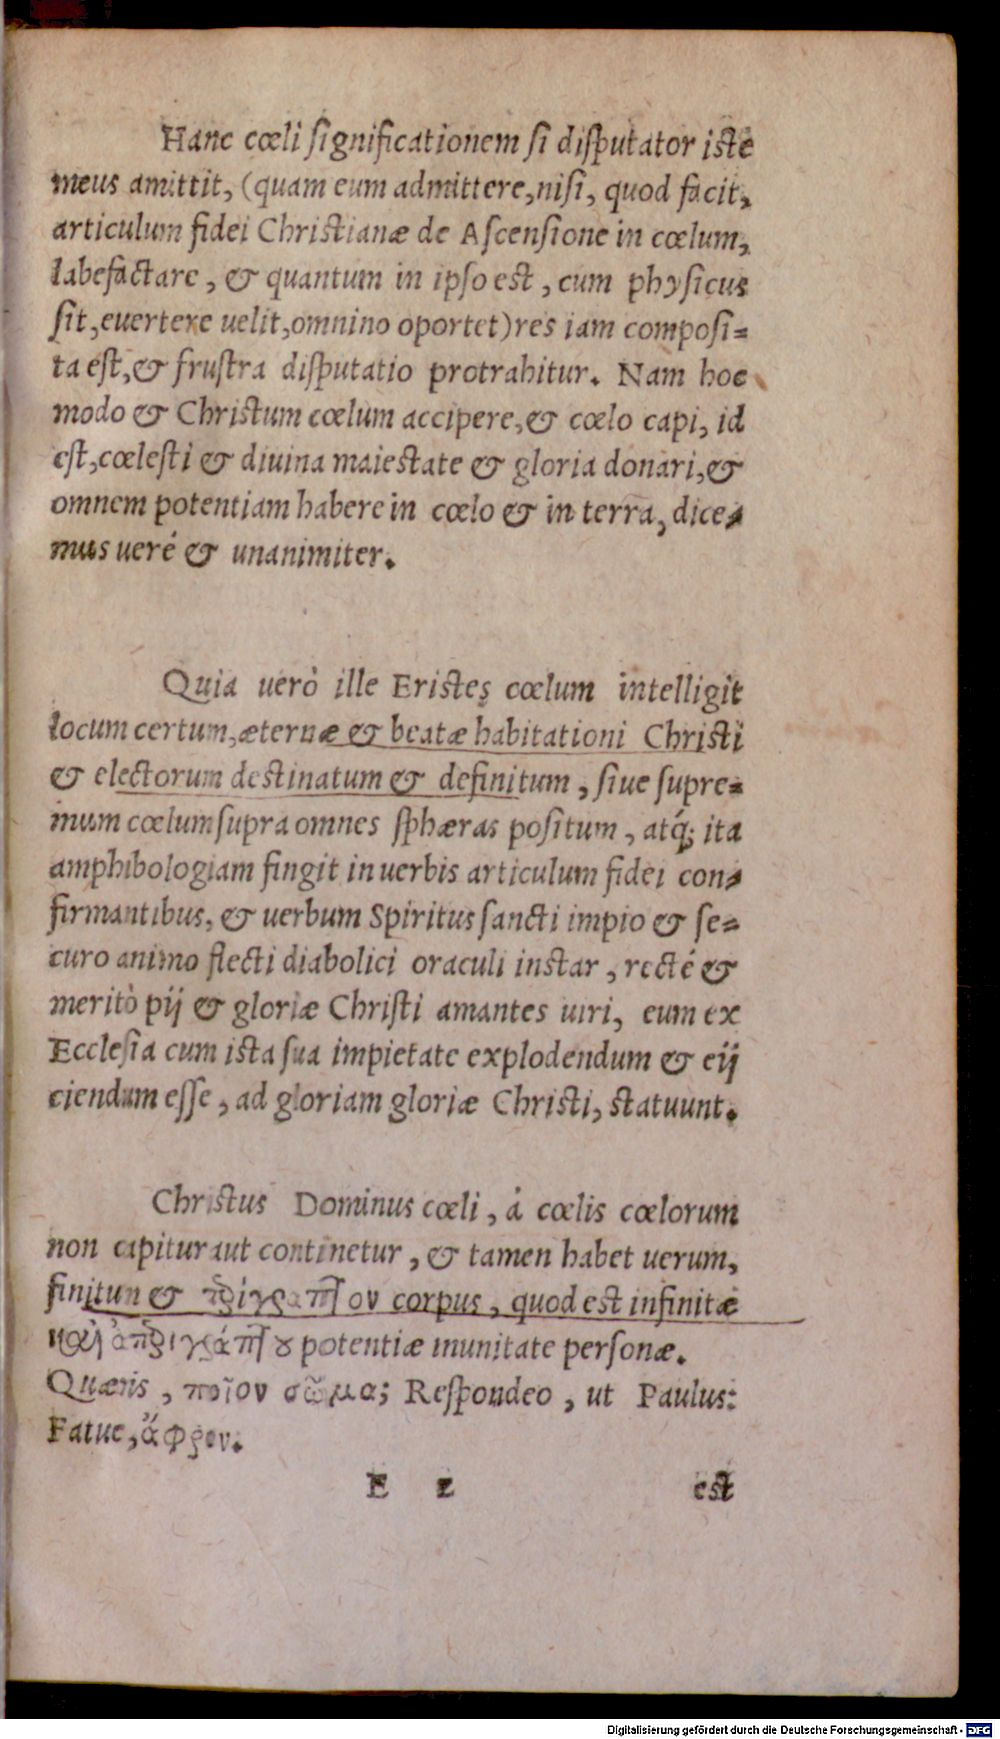 Hanc cœli ſignificationem ſi diſputator iste
meus amittit, (quam eum admittere, niſi, quod facit,
articulum fidei Christianæ de Aſcenſione in cœlum,
labefactare, & quantum in ipſo est, cum phyſicus
ſit, euertere uelit, omnino oportet) res iam compoſi=
ta eſt, & fruſtra diſputatio protrahitur. Nam hoc
modo & Christum cœlum accipere, & cœlo capi, id
eſt, cœleſti & diuina maiestate & gloria donari, &
omnem potentiam habere in cœlo & in terra, dice=
mus ueré & unanimiter.
Quia uerò ille Eristes cœlum intelligit
locum certum, æternæ & beatæ habitationi Chriſti
& electorum destinatum & definitum, ſiue ſupre=
mum cœlum ſupra omnes ſphæras poſitum, atq́; ita
amphibologiam fingit in uerbis articulum fidei con=
firmantibus, & uerbum Spiritus ſancti impio & ſe=
curo animo flecti diabolici oraculi instar, recté &
meritò pij & gloriæ Chriſti amantes uiri, eum ex
Eccleſia cum ista ſua impietate explodendum & eij
ciendum eſſe, ad gloriam gloriæ Chriſti, statuunt.
Christus Dominus cœli, á cœlis cœlorum
non capitur aut continetur, & tamen habet uerum,
finitun & πεϱίγραπτον corpus, quod est infinitæ
καὶ ἀπεϱιγράπτου potentiæ inunitate perſonæ.
Quæris, ποῖον σῶμα; Reſpondeo, ut Paulus:
Fatue, ἄφρον.
E 2 est
Digitalisierung gefördert durch die Deutsche Forschungsgemeinschaft - DFG